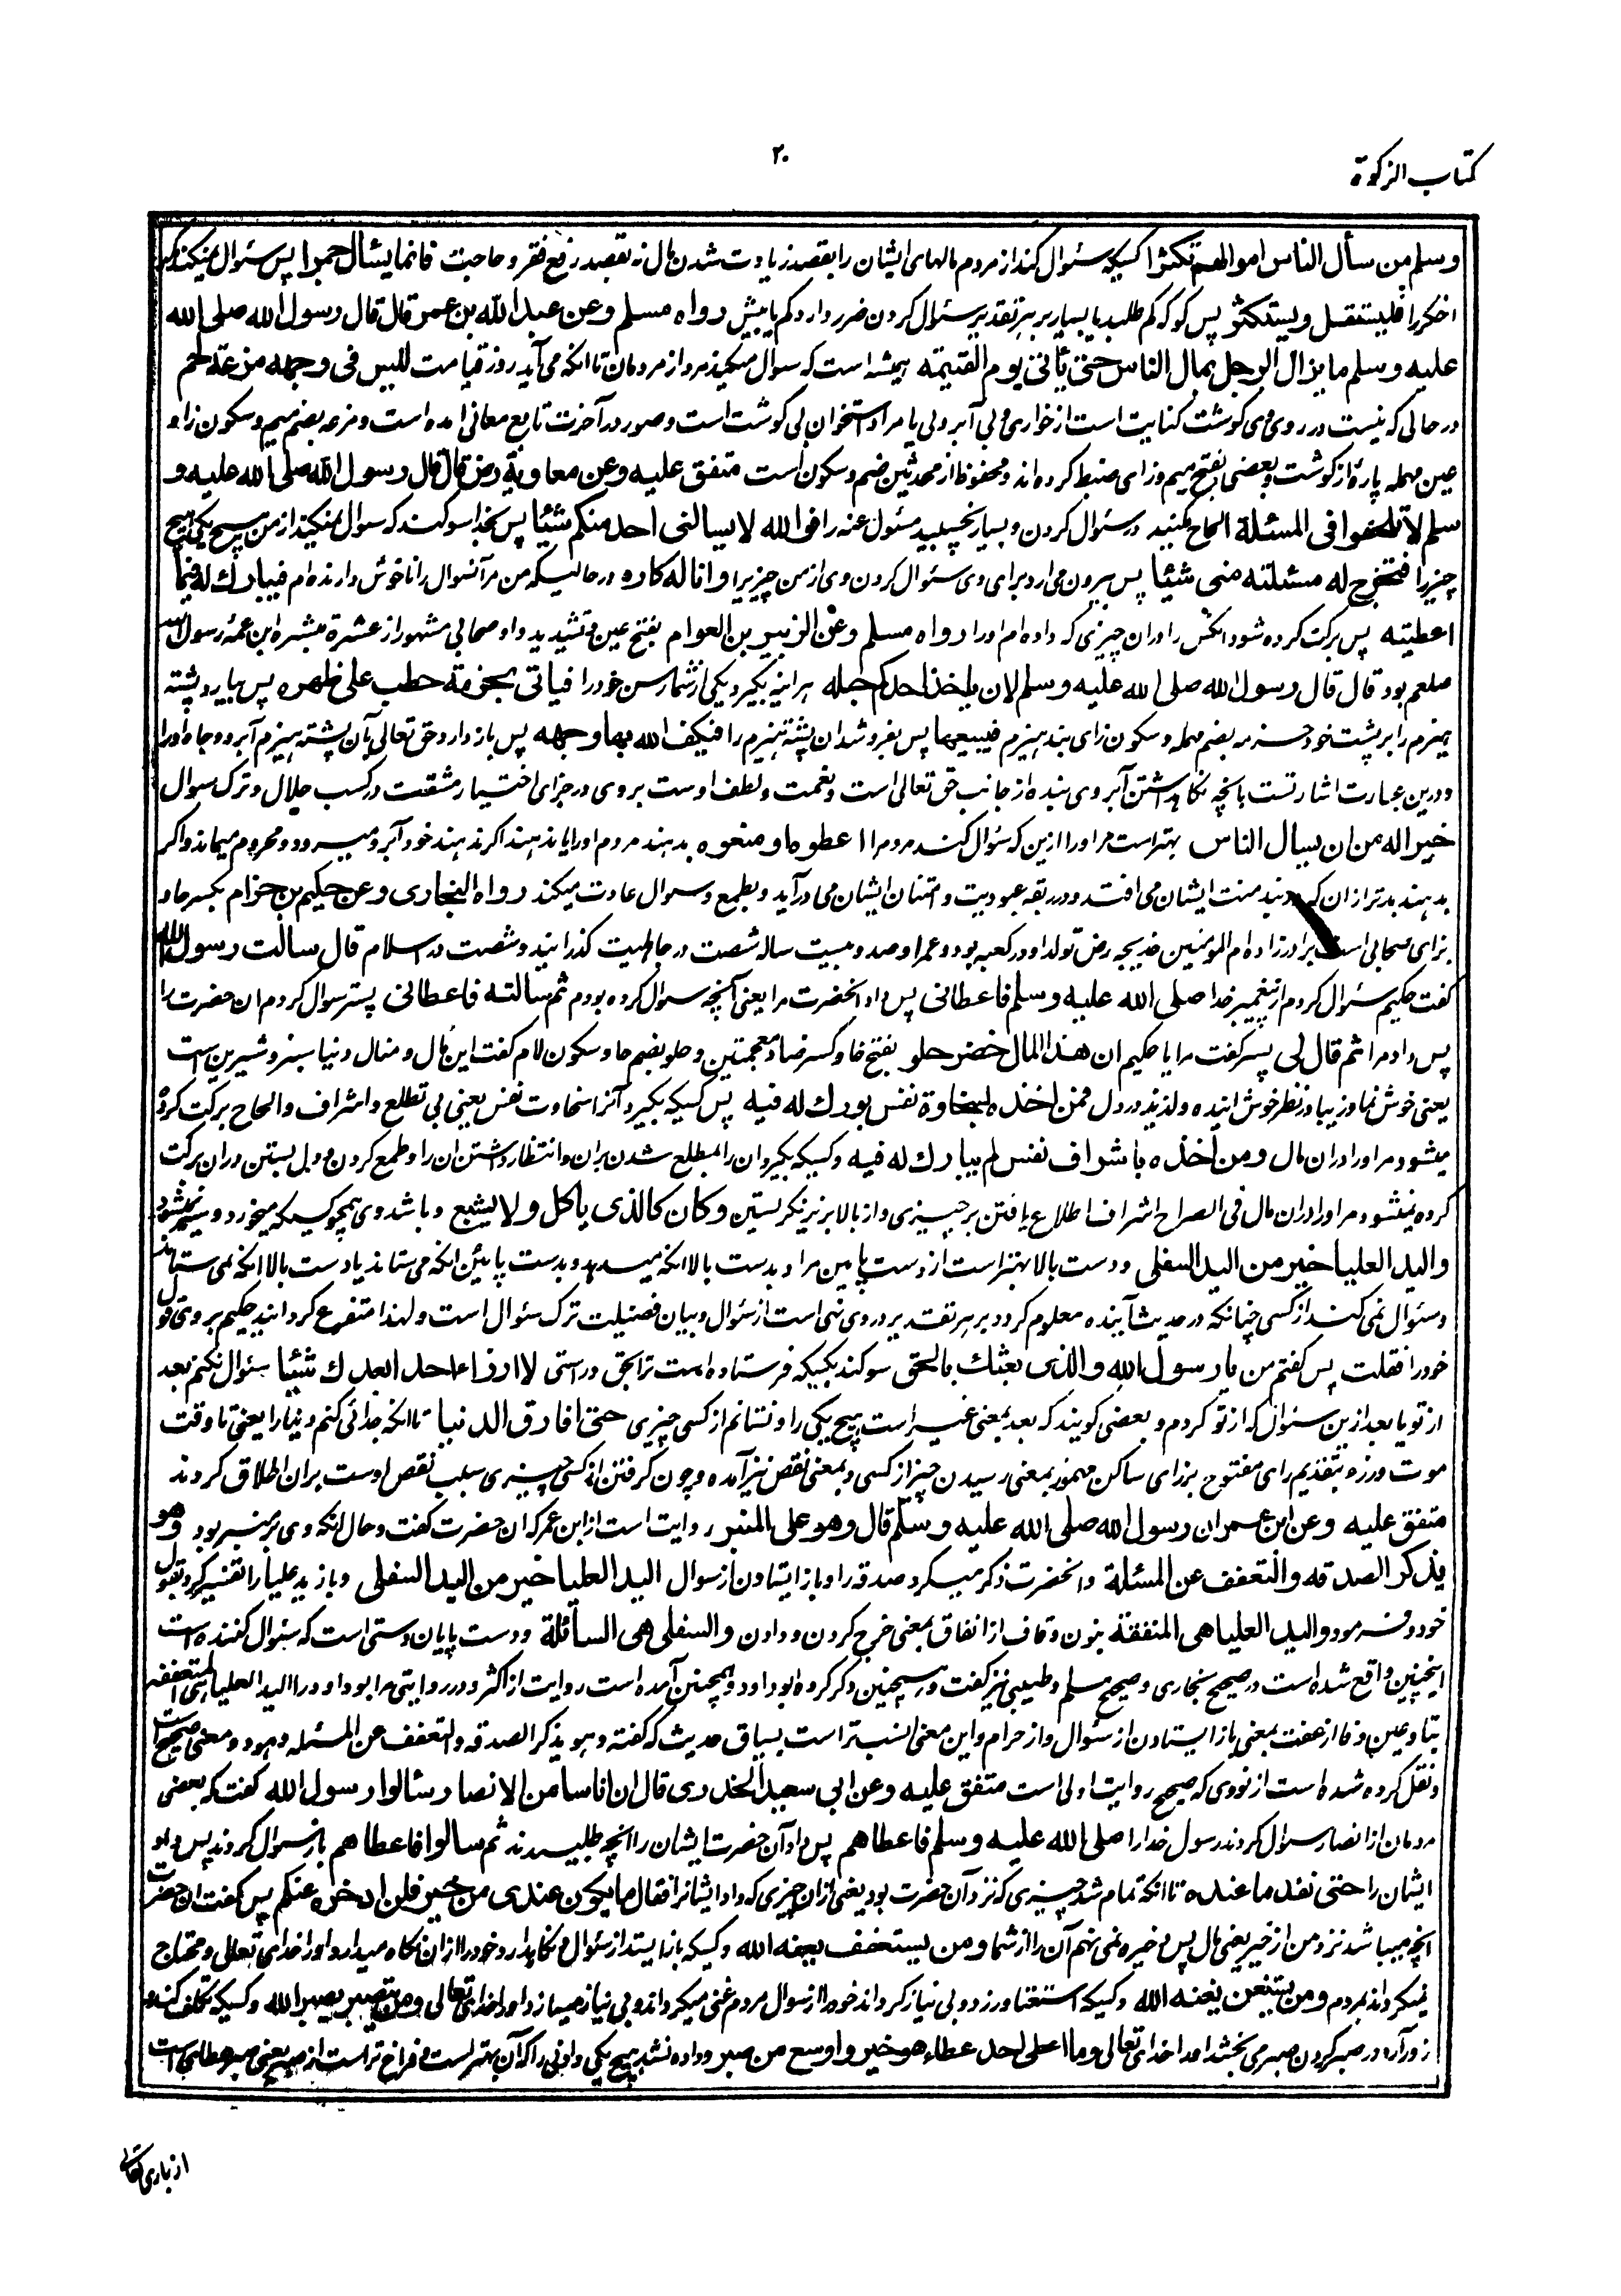 کتاب الزکوة
۲۰
وسلم من سأل الناس اموالهم تکثرا کسیکه سئوال کند از مردم مالهای ایشان را بقصد زیادت شدن مال نه بقصد رفع فقر و حاجت فانما یسأل جمرا پس سئوال نمیکند مگر
اخگر را فلیستقل و یستکثر پس کو که کم طلبد یا بسیار بر هر تقدیر سئوال کردن ضرر دارد کم یا بیش رواه مسلم وعن عبد الله بن عمر قال قال رسول الله صلی الله
علیه وسلم ما یزال الرجل یسأل الناس حتی یأتی یوم القیمة همیشه است که سوال میکند مرد از مردمان تا انکه می آید روز قیامت لیس فی وجهه مزعة لحم
در حالی که نیست در روی وی گوشت کنایت است از خواری و بی آبرویی یا مراد استخوان بی گوشت است و صور در آخرت تابع معانی امده است و مزعه بضم میم و سکون زا و
عین مهمله پارهٔ از گوشت و بعضی بفتح میم و زای ضبط کرده اند و محفوظ از محدثین ضم و سکون است متفق علیه وعن معاویة رض قال قال رسول الله صلی الله علیه و
سلم لا تلحفوا فی المسئلة الحاح مکنید در سئوال کردن و بسیار نچسپید مسئول عنه را فوالله لا یسالنی احد منکم شیئا پس بخدا سوگند که سوال نمیکند از من هیچ یکی هیچ
چیز را فتخرج له مسئلته منی شیئا پس بیرون می ارد برای وی سئوال کردن وی از من چیزیرا وانا له کاره در حالیکه من مر آنسوال را ناخوش دارنده ام فیبارك له فیما
اعطیته پس برکت کرده شود انکس را دران چیزی که داده ام اورا رواه مسلم وعن الزبیر بن العوام بفتح عین و تشدید واو صحابی مشهور از عشرهٔ مبشره ابن عمهٔ رسول الله
صلعم بود قال قال رسول الله صلی الله علیه وسلم لان یاخذ احدکم حبله هر اینه بگیرد یکی از شما رسن خود را فیاتی بحزمة حطب علی ظهره پس بیارد پشته
هیزم را بر پشت خود حزمه بضم مهمله و سکون زای بند هیزم فیبیعها پس بفروشد ان پشته هیزم را فیکف الله بها وجهه پس باز دارد حق تعالی بآن پشته هیزم آبرو و جاه اورا
و درین عبارت اشارتست بانچه نگاهداشتن آبروی بنده از جانب حق تعالی است و نعمت و لطف اوست بر وی در جزای اختیار مشقت در کسب حلال و ترک سوال
خیر له من ان یسال الناس بهتر است مر اورا ازین که سئوال کند مردم را اعطوه او منعوه بدهند مردم اورا یا ندهند اگر ندهند خود آبرو میرود و محروم میماند و اگر
بدهند بدتر ازان که منت ایشان می افتد و در ربقه عبودیت و امتنان ایشان می در آید و بطمع و سوال عادت میکند رواه البخاری وعن حکیم بن حزام بکسر حا و
بزای صحابی است برادر زاده ام المومنین خدیجه رض تولد او در کعبه بود و عمر او صد و بیست ساله شصت در جاهلیت گذرانید و شصت در اسلام قال سالت رسول الله
گفت حکیم سئوال کردم از پیغمبر خدا صلی الله علیه وسلم فاعطانی پس داد انحضرت مرا یعنی آنچه سوال کرده بودم ثم سالته فاعطانی پستر سوال کردم ان حضرت را
پس داد مرا ثم قال لی پستر گفت مرا یا حکیم ان هذا المال خضر حلو بفتح خا و کسر ضاد معجمتین و حلو بضم حا و سکون لام گفت این مال و منال دنیا سبز و شیرین است
یعنی خوش نما و زیبا در نظر خوش اینده و لذیذ در دل فمن اخذه بسخاوة نفس بورك له فیه پس کسیکه بگیرد آنرا بسخاوت نفس یعنی بی تطلع و اشراف و الحاح برکت کرده
میشود مر اورا دران مال ومن اخذه باشراف نفس لم یبارك له فیه و کسیکه بگیرد ان را بمطلع شدن بران و انتظار داشتن ان را و طمع کردن و دل بستن دران برکت
کرده نمیشود مر اورا دران مال فی الصراح اشراف اطلاع یافتن بر چیزی و از بالا بزیر نگریستن وکان کالذی یاکل ولا یشبع و باشد وی همچو کسیکه میخورد و سیر نمیشود
والید العلیا خیر من الید السفلی و دست بالا بهتر است از دست پایین مراد بدست بالا انکه میدهد و بدست پائین انکه می ستاند یا دست بالا انکه نمی ستاند
و سئوال نمی کند از کسی چنانکه در حدیث آینده معلوم گردد بر هر تقدیر در وی نهی است از سئوال و بیان فضیلت ترک سئوال است و لهذا متفرع گردانید حکیم بر وی قول
خود را فقلت پس گفتم من یا رسول الله والذی بعثك بالحق سوگند بکسیکه فرستاده است ترا بحق و راستی لا ارزا احدا بعدك شیئا سئوال نکنم بعد
از تو یا بعد ازین سئوال که از تو کردم و بعضی گویند که بعد بمعنی غیر است هیچ یکی را و نستانم از کسی چیزی حتی افارق الدنیا تا انکه جدائی کنم دنیا را یعنی تا وقت
موت و رزء بتقدیم رای مفتوح بزای ساکن مهموز بمعنی رسیدن چیز از کسی و بمعنی نقص نیز آمده و چون گرفتن از کسی چیزی سبب نقص اوست بران اطلاق کردند
متفق علیه وعن ابن عمر ان رسول الله صلی الله علیه وسلم قال وهو علی المنبر روایت است از ابن عمر که ان حضرت گفت و حال انکه وی بر منبر بود وهو
یذکر الصدقة والتعفف عن المسئلة و انحضرت ذکر میکرد صدقه را و باز ایستادن از سوال الید العلیا خیر من الید السفلی و باز ید علیا را تفسیر کرد بقول
خود و فرمود والید العلیا هی المنفقة بنون و قاف از انفاق بمعنی خرج کردن و دادن والسفلی هی السائلة و دست پایان دستی است که سئوال کننده است
اینچنین واقع شده است در صحیح بخاری و صحیح مسلم و طیبی نیز گفت و همچنین ذکر کرده ابو داود و همچنین آمده است روایت از اکثر و در روایتی مر ابو داود را الید العلیا هی المتعففه
بتا و عین و فا از عفت بمعنی باز ایستادن از سئوال و از حرام و این معنی انسب تر است بسیاق حدیث که گفته و هو یذکر الصدقه و التعفف عن المسئله و بود و معنی صحیح است
و نقل کرده شده است از نووی که صحیح روایت اولی است متفق علیه وعن ابی سعید الخدری قال ان اناسا من الانصار سئالوا رسول الله گفت که بعضی
مردمان از انصار سوال کردند رسول خدا را صلی الله علیه وسلم فاعطاهم پس داد آن حضرت ایشان را انچه طلبیدند ثم سالوا فاعطاهم باز سوال کردند پس داد
ایشان را حتی نفد ما عنده تا انکه تمام شد چیزی که نزد آن حضرت بود یعنی ازان چیزی که داد ایشانرا فقال ما یکون عندی من خیر فلن ادخره عنکم پس گفت ان حضرت
انچه میباشد نزد من از خیر یعنی مال پس ذخیره نمی نهم آن را از شما ومن یستعفف یعفه الله و کسیکه باز ایستد از سئوال و نگاه دارد خود را ازان نگاه میدارد اورا خدای تعالی و محتاج
نمیگرداند بمردم ومن یستغن یغنه الله و کسیکه استغنا ورزد و بی نیاز گرداند خود را از سوال مردم غنی میگرداند و بی نیاز میسازد اورا خدای تعالی ومن یتصبر یصبره الله و کسیکه تکلف کند و
زور آرد در صبر کردن صبر می بخشد اورا خدای تعالی وما اعطی احد عطاء هو خیر واوسع من صبر و داده نشد هیچ یکی دادنی را که آن بهتر است و فراخ تر است از صبر یعنی صبر عطائی است
از باری تعالی